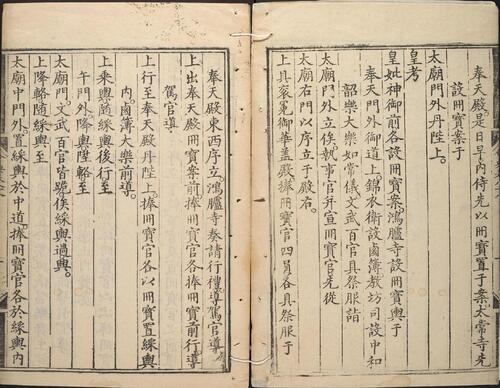 奉天殿是日早内侍先以冊寶置于案太常寺先
設冊寶案于
太廟門外丹陛上。
皇考
皇妣神御前各設冊寶案鴻臚寺設冊寶輿于
奉天門外御道上錦衣衛設鹵簿教坊司設中和
韶樂大樂如常儀文武百官具祭服詣
太廟門外立俟執事官并宣冊寶官先從
太廟右門以序立于殿右。
上具衮冕御華蓋殿捧冊寶官四員各具祭服于
奉天殿東西序立鴻臚寺奏請行禮導駕官導
上出奉天殿冊寶案前捧冊寶官各捧冊寶前行導
駕官導
上行至奉天殿丹陛上。捧冊寶官各以冊寶置綵輿
内。鹵簿大樂前導。
上乘輿隨綵輿後行至
午門外降輿陞輅至
太廟門。文武百官皆跪俟綵輿過興。
上降輅隨綵輿至
太廟中門外。置綵輿於中道。捧冊寶官各於綵輿内